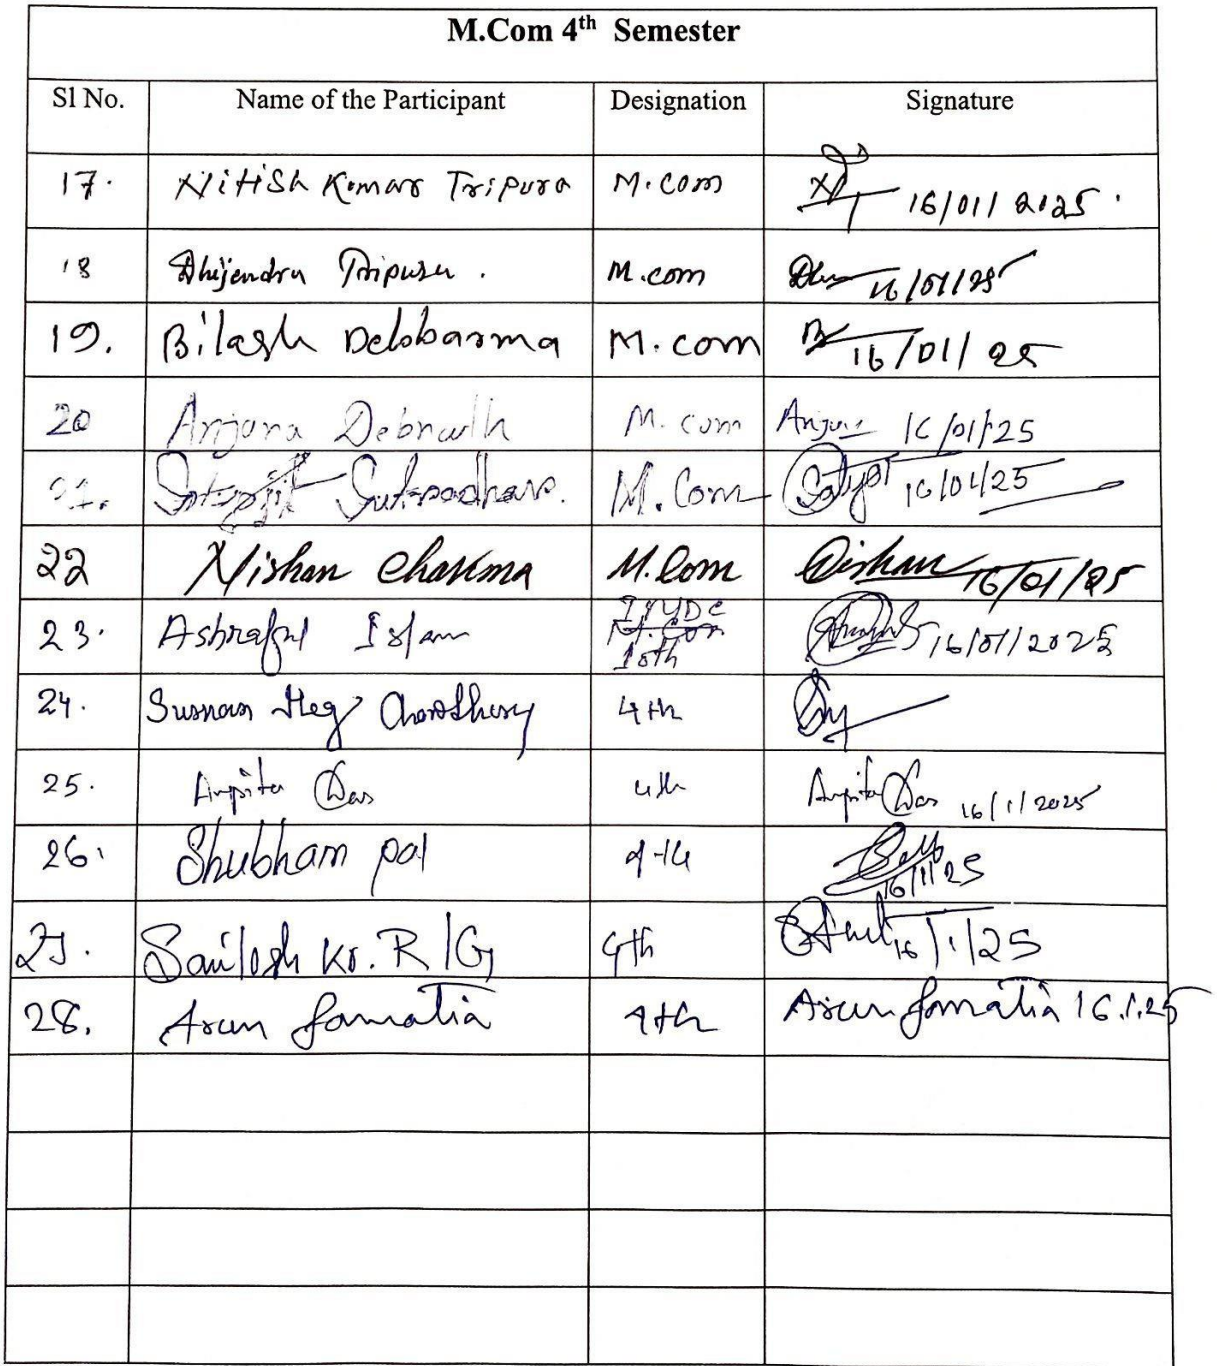 M.Com 4th Semester
Sl No. Name of the Participant Designation Signature
17. Nitish Kumar Tripura M.com 16/01/2025.
18 Dhijendra Tripura. M.com 16/01/25
19. Bilash Debbarma M.com 16/01/25
20 Anjana Debnath M.com 16/01/25
21. Satyajit Sutradhar. M.Com Satyajit 16/01/25
22 Nishan Chakma M.Com 16/01/25
23. Ashraful Islam 10th 16/01/2025
24. 4th
25. Arpita Das 4th Arpita Das 16/1/2025
26. Shubham pal 4th 16/1/25
27. Kr. R/G 4th 16/1/25
28. Arun Jamatia 4th Arun Jamatia 16.1.25